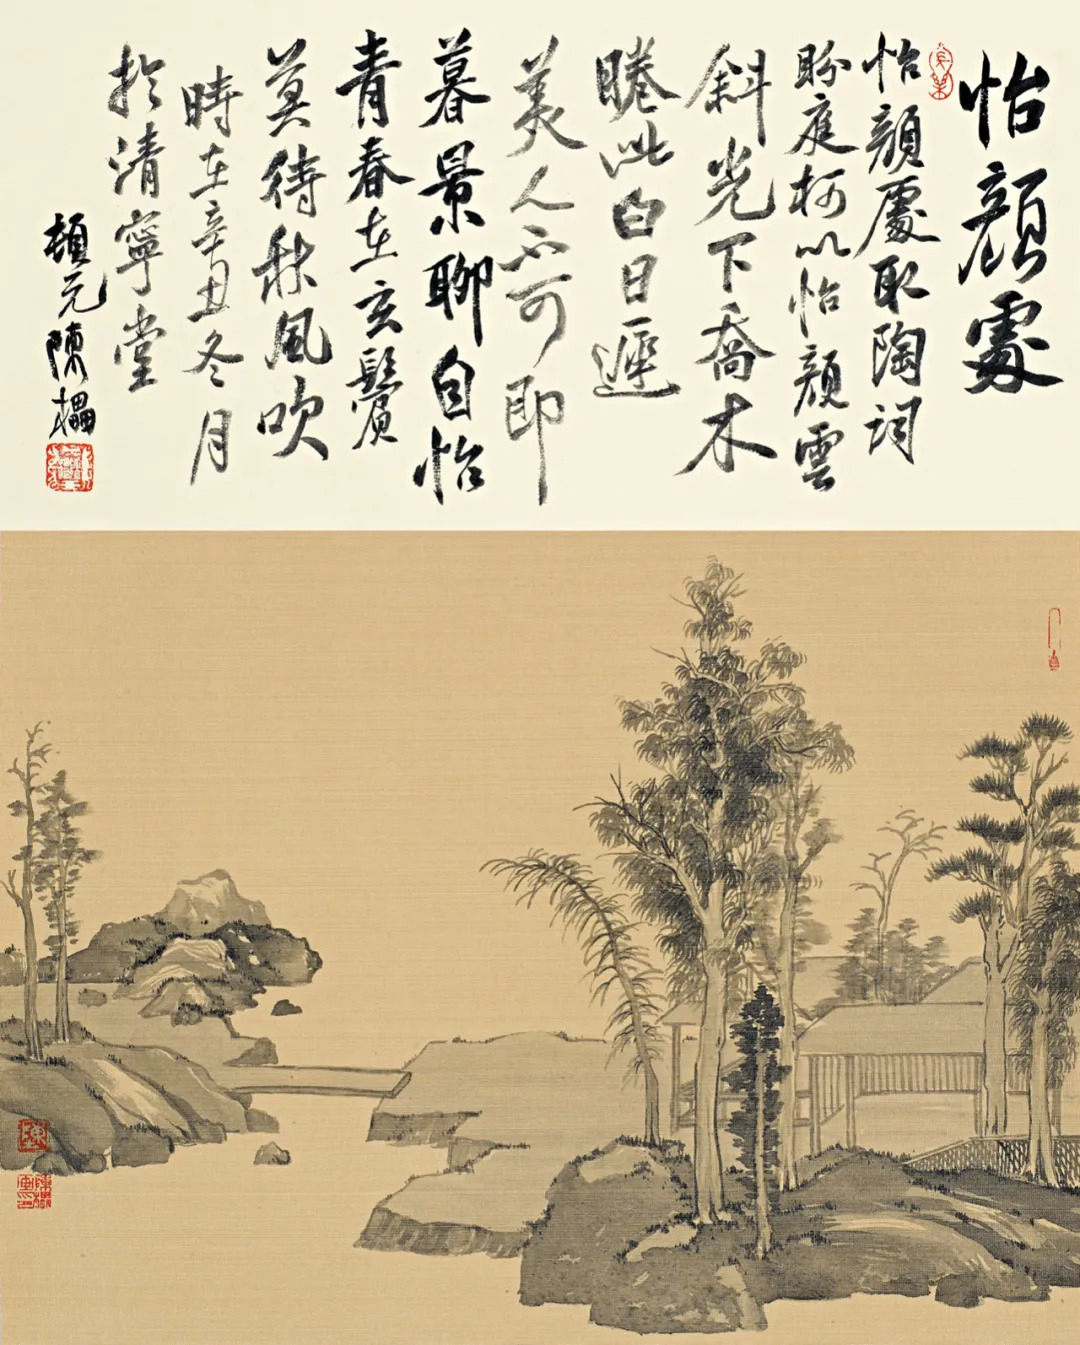 怡顏處
怡顏處取陶詞
盼庭柯以怡顏雲
斜光下喬木
睠此白日遲
美人不可即
暮景聊自怡
青春在玄鬢
莫待秋風吹
時在辛丑冬月
於清寧堂
頑元陳㩜